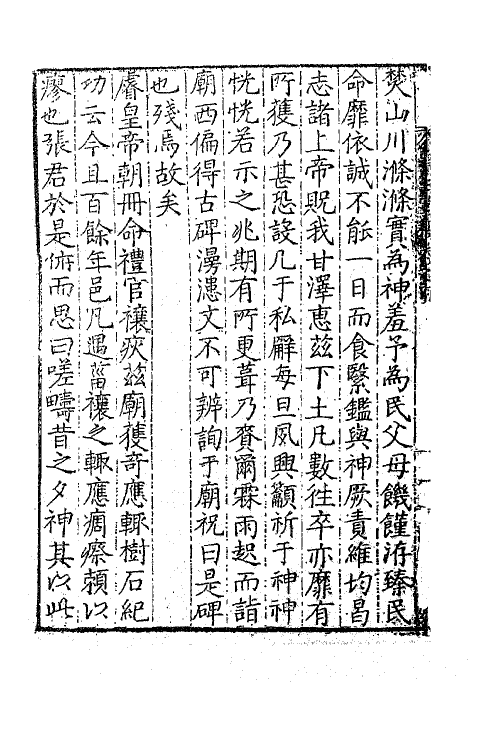 焚山川滌滌實為神羞予為民父母饑饉洊臻民
命靡依誠不能一日而食繄鑑與神厥責維均曷
志諸上帝貺我甘澤惠茲下土凡數往卒亦靡有
所獲乃甚恐設几于私廨每旦夙興籲祈于神神
恍恍若示之兆期有所更葺乃賚爾霖雨起而詣
廟西偏得古碑漫漶文不可辨詢于廟祝曰是碑
也殘焉故矣
睿皇帝朝冊命禮官禳疾茲廟獲奇應輙樹石紀
功云今且百餘年邑凡遇菑禳之輙應痌瘝賴以
瘳也張君於是俯而思曰嗟疇昔之夕神其以此